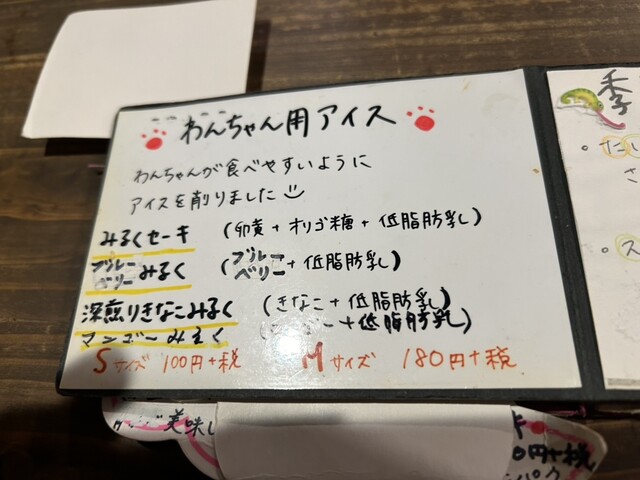 わんちゃん用アイス
わんちゃんが食べやすいように
アイスを削りました
みるくセーキ (卵黄+オリゴ糖+低脂肪乳)
ブルーベリーみるく (ブルーベリー+低脂肪乳)
深煎りきなこみるく (きなこ+低脂肪乳)
マンゴーみるく +低脂肪乳)
Sサイズ 100円+税 Mサイズ 180円+税
季
・たい
さ
・ス
美味し
0円+税